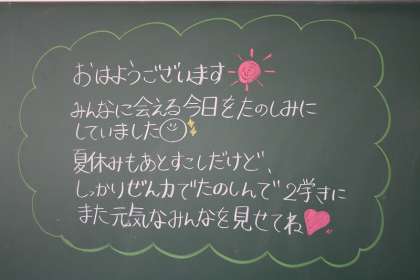 おはようございます
みんなに会える今日をたのしみに
していました
夏休みもあとすこしだけど、
しっかりぜん力でたのしんで2学きに
また元気なみんなを見せてね